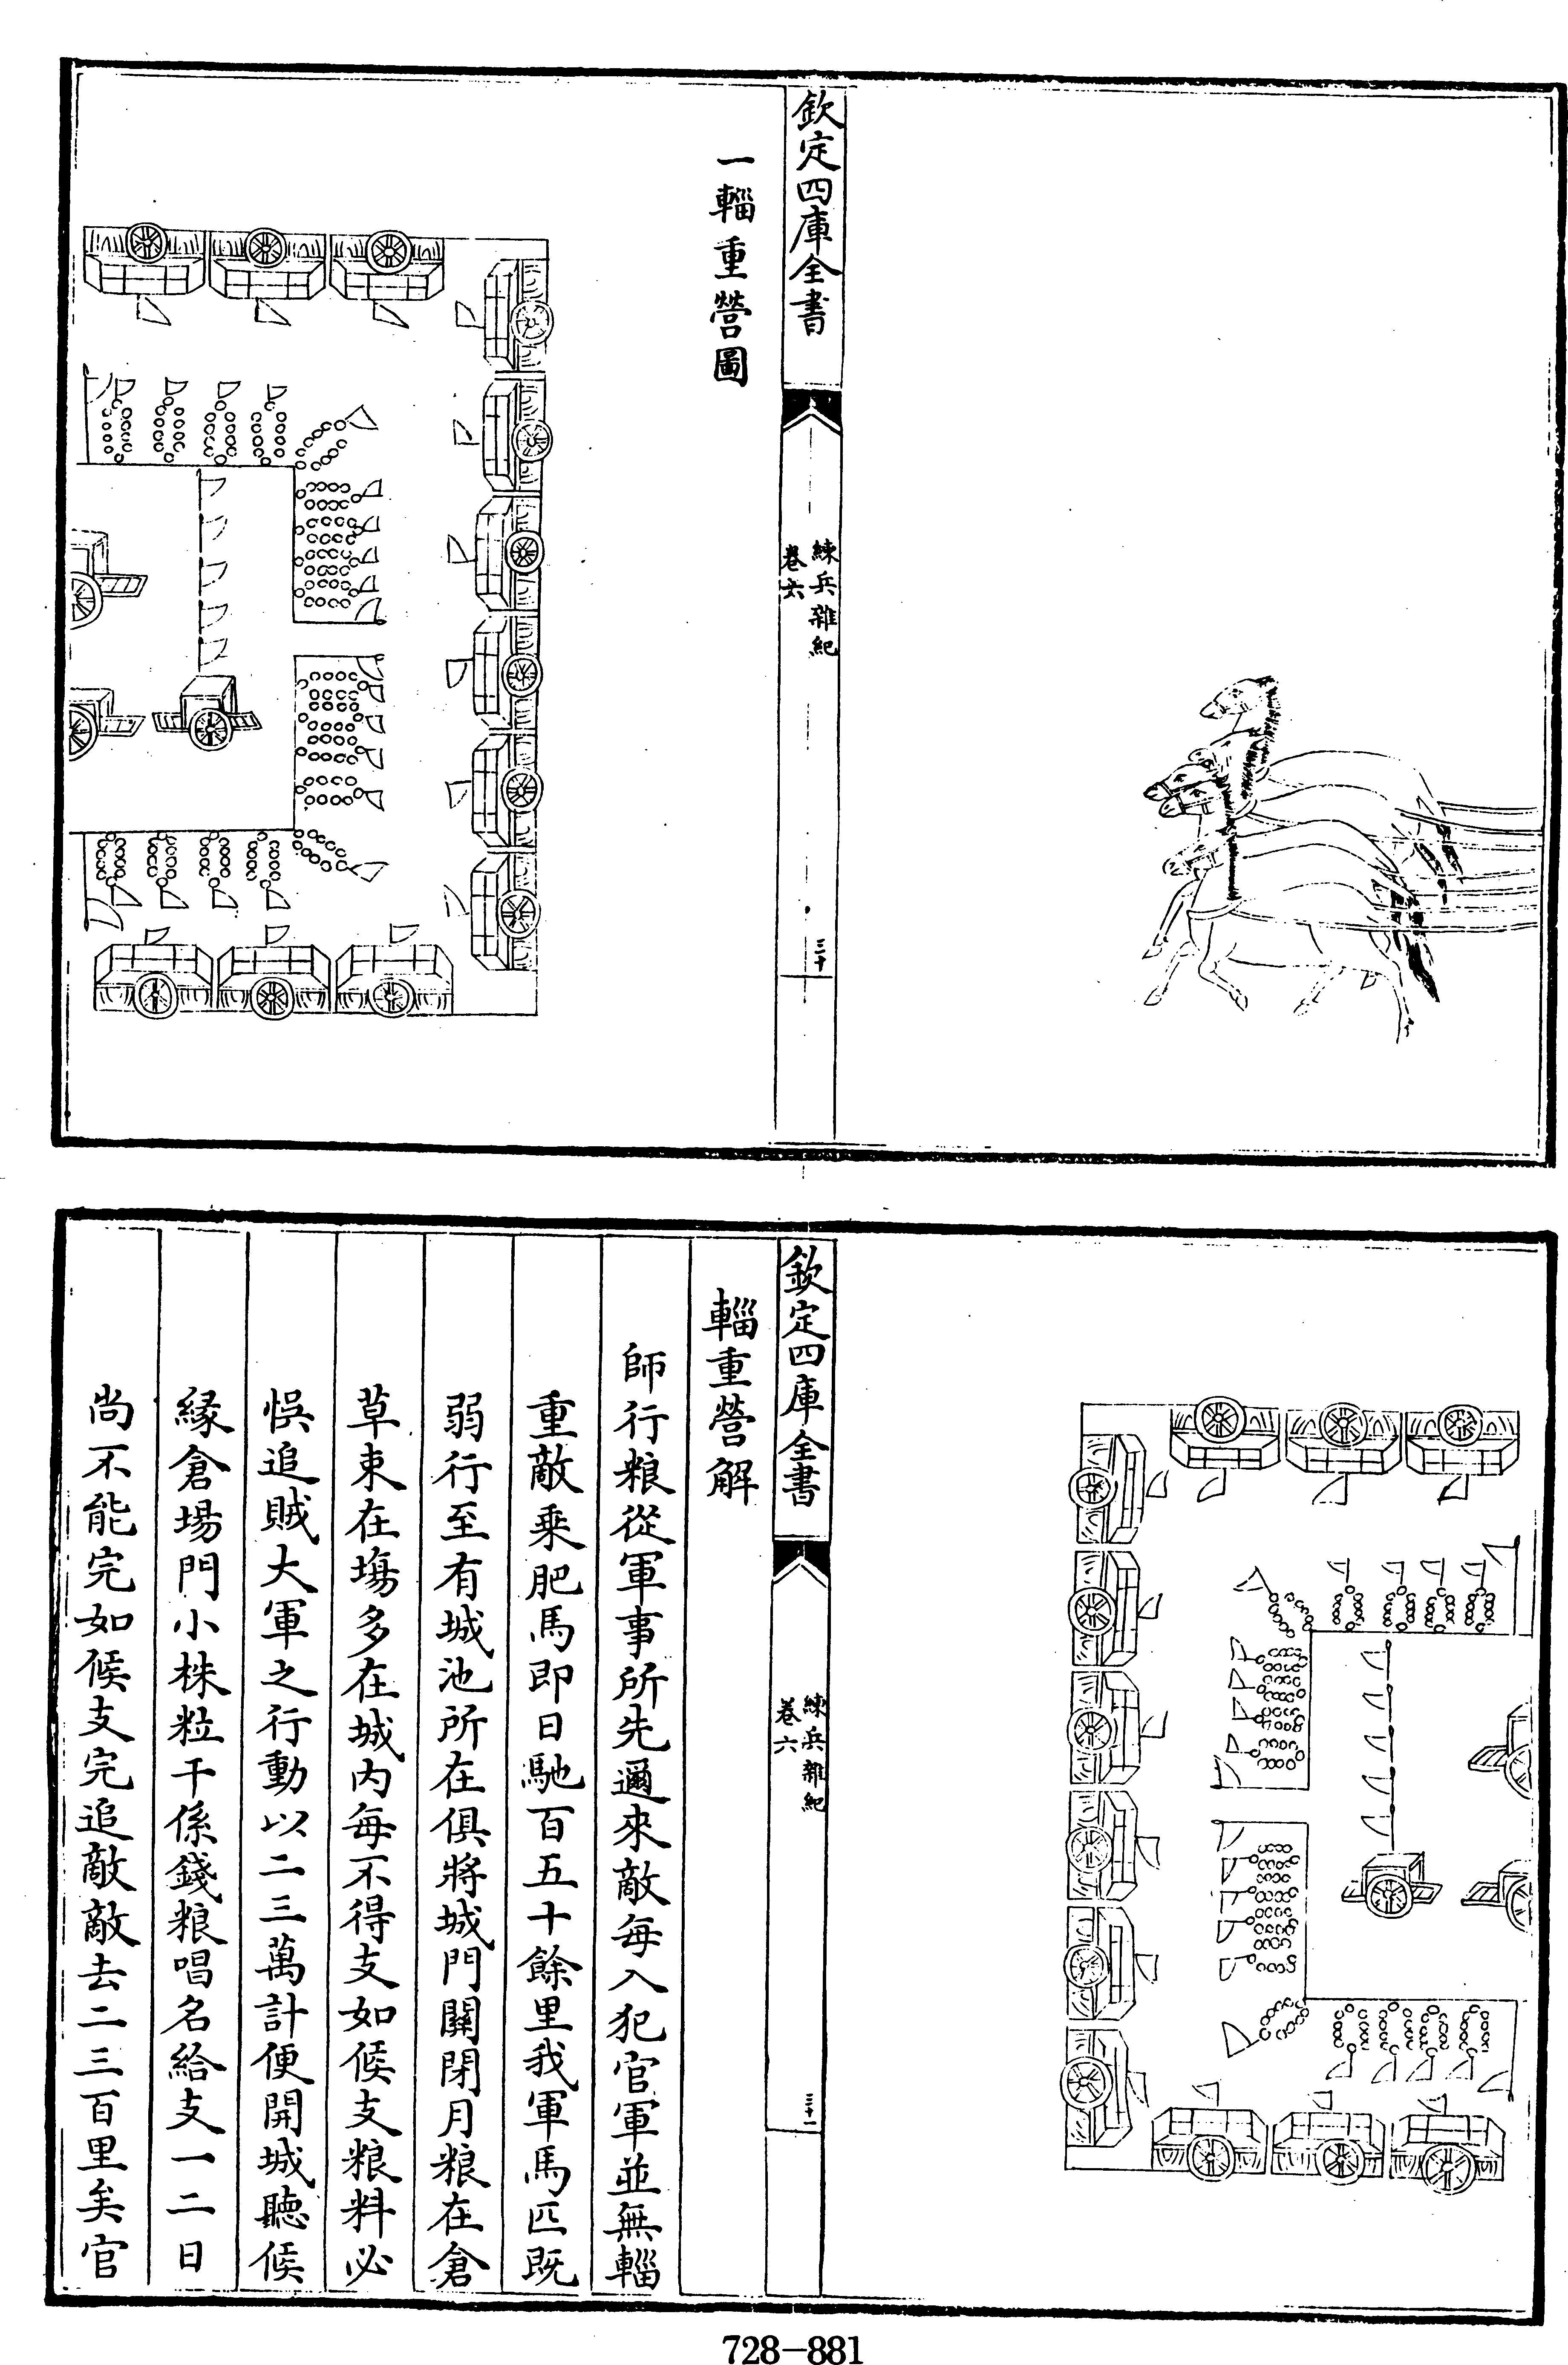 欽定四庫全書
練兵雜紀
卷六
三十
一輜重營圖
欽定四庫全書
練兵雜紀
卷六
三十一
輜重營解
師行粮從軍事所先邇來敵每入犯官軍並無輜
重敵乘肥馬即日馳百五十餘里我軍馬匹既
弱行至有城池所在俱將城門關閉月粮在倉
草束在塲多在城内每不得支如候支粮料必
悞追賊大軍之行動以二三萬計便開城聽候
緣倉場門小株粒干係錢粮唱名給支一二日
尚不能完如候支完追敵敵去二三百里矣官
728-881